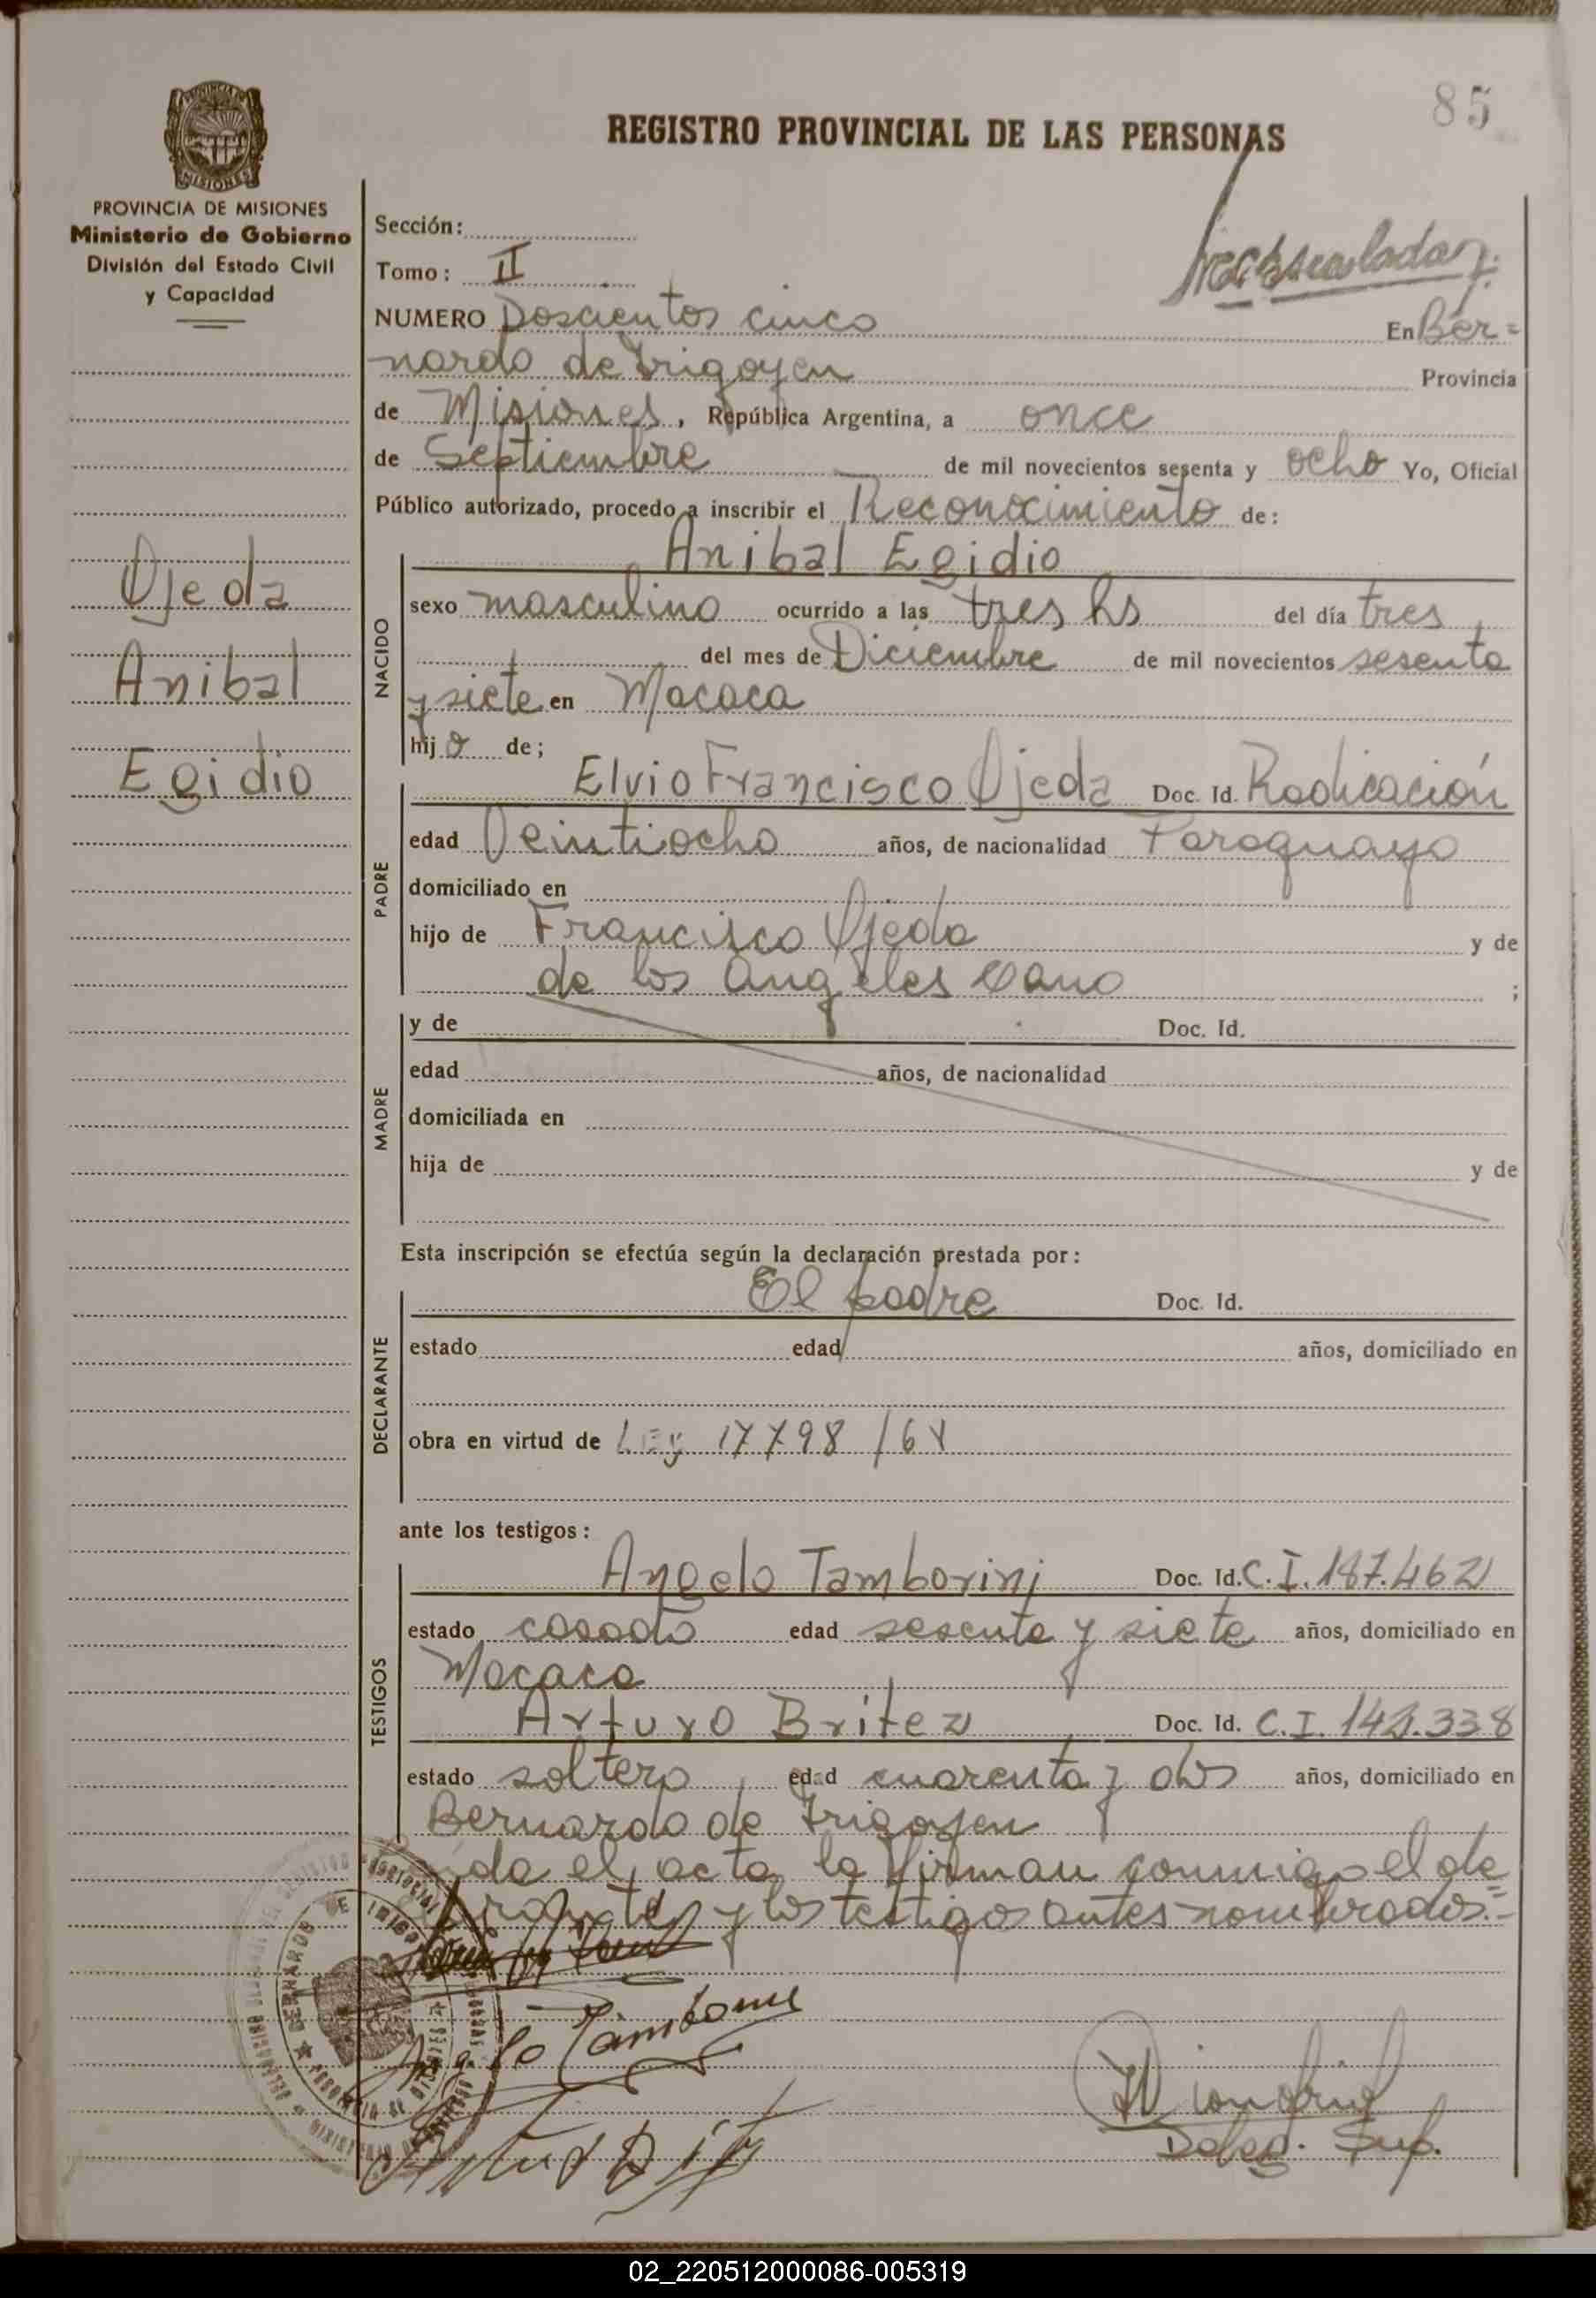 85
REGISTRO PROVINCIAL DE LAS PERSONAS
MISIONES
PROVINCIA DE MISIONES
Ministerio de Gobierno
División del Estado Civil
y Capacidad
Ojeda
Anibal
Egidio
Sección:
Tomo: II
NUMERO Doscientos cinco En Ber=
nardo de Irigoyen Provincia
de Misiones, República Argentina, a once
de Septiembre de mil novecientos sesenta y ocho Yo, Oficial
Público autorizado, procedo a inscribir el Reconocimiento de:
NACIDO
Anibal Egidio
sexo masculino ocurrido a las tres hs del día tres
del mes de Diciembre de mil novecientos sesenta
y siete en Macaca
hijo de;
PADRE
Elvio Francisco Ojeda Doc. Id. Radicación
edad Veintiocho años, de nacionalidad Paraguayo
domiciliado en
hijo de Francisco Ojeda y de
de los Angeles Cano ;
MADRE
y de Doc. Id.
edad años, de nacionalidad
domiciliada en
hija de y de
Esta inscripción se efectúa según la declaración prestada por:
DECLARANTE
El padre Doc. Id.
estado edad años, domiciliado en
obra en virtud de Ley 17798/64
ante los testigos:
TESTIGOS
Angelo Tamborini Doc. Id. C.I. 187.462
estado casado edad sesenta y siete años, domiciliado en
Macaca
Arturo Britez Doc. Id. C.I. 142.338
estado soltero edad cuarenta y dos años, domiciliado en
Bernardo de Irigoyen
el acta la firman conmigo el de
y los testigos antes nombrados.=
Angelo Tamborini
Deleg. Sup.
02_220512000086-005319